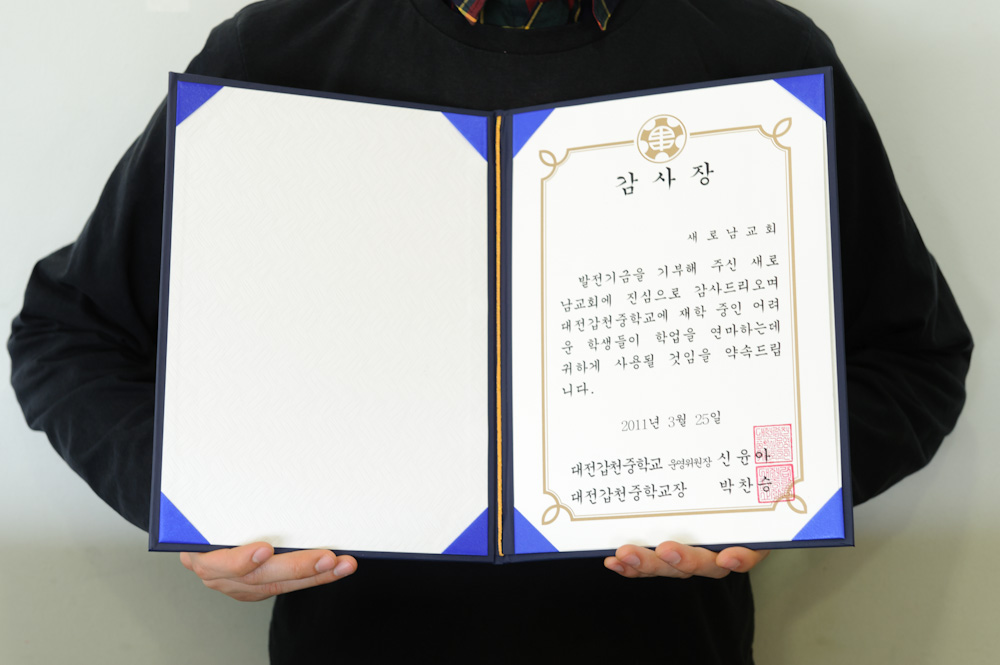 감사장
새로남교회
발전기금을 기부해 주신 새로
남교회에 진심으로 감사드리오며
대전갑천중학교에 재학 중인 어려
운 학생들이 학업을 연마하는데
귀하게 사용될 것임을 약속드립
니다.
2011년 3월 25일
대전갑천중학교 운영위원장 신윤아
대전갑천중학교장 박찬승